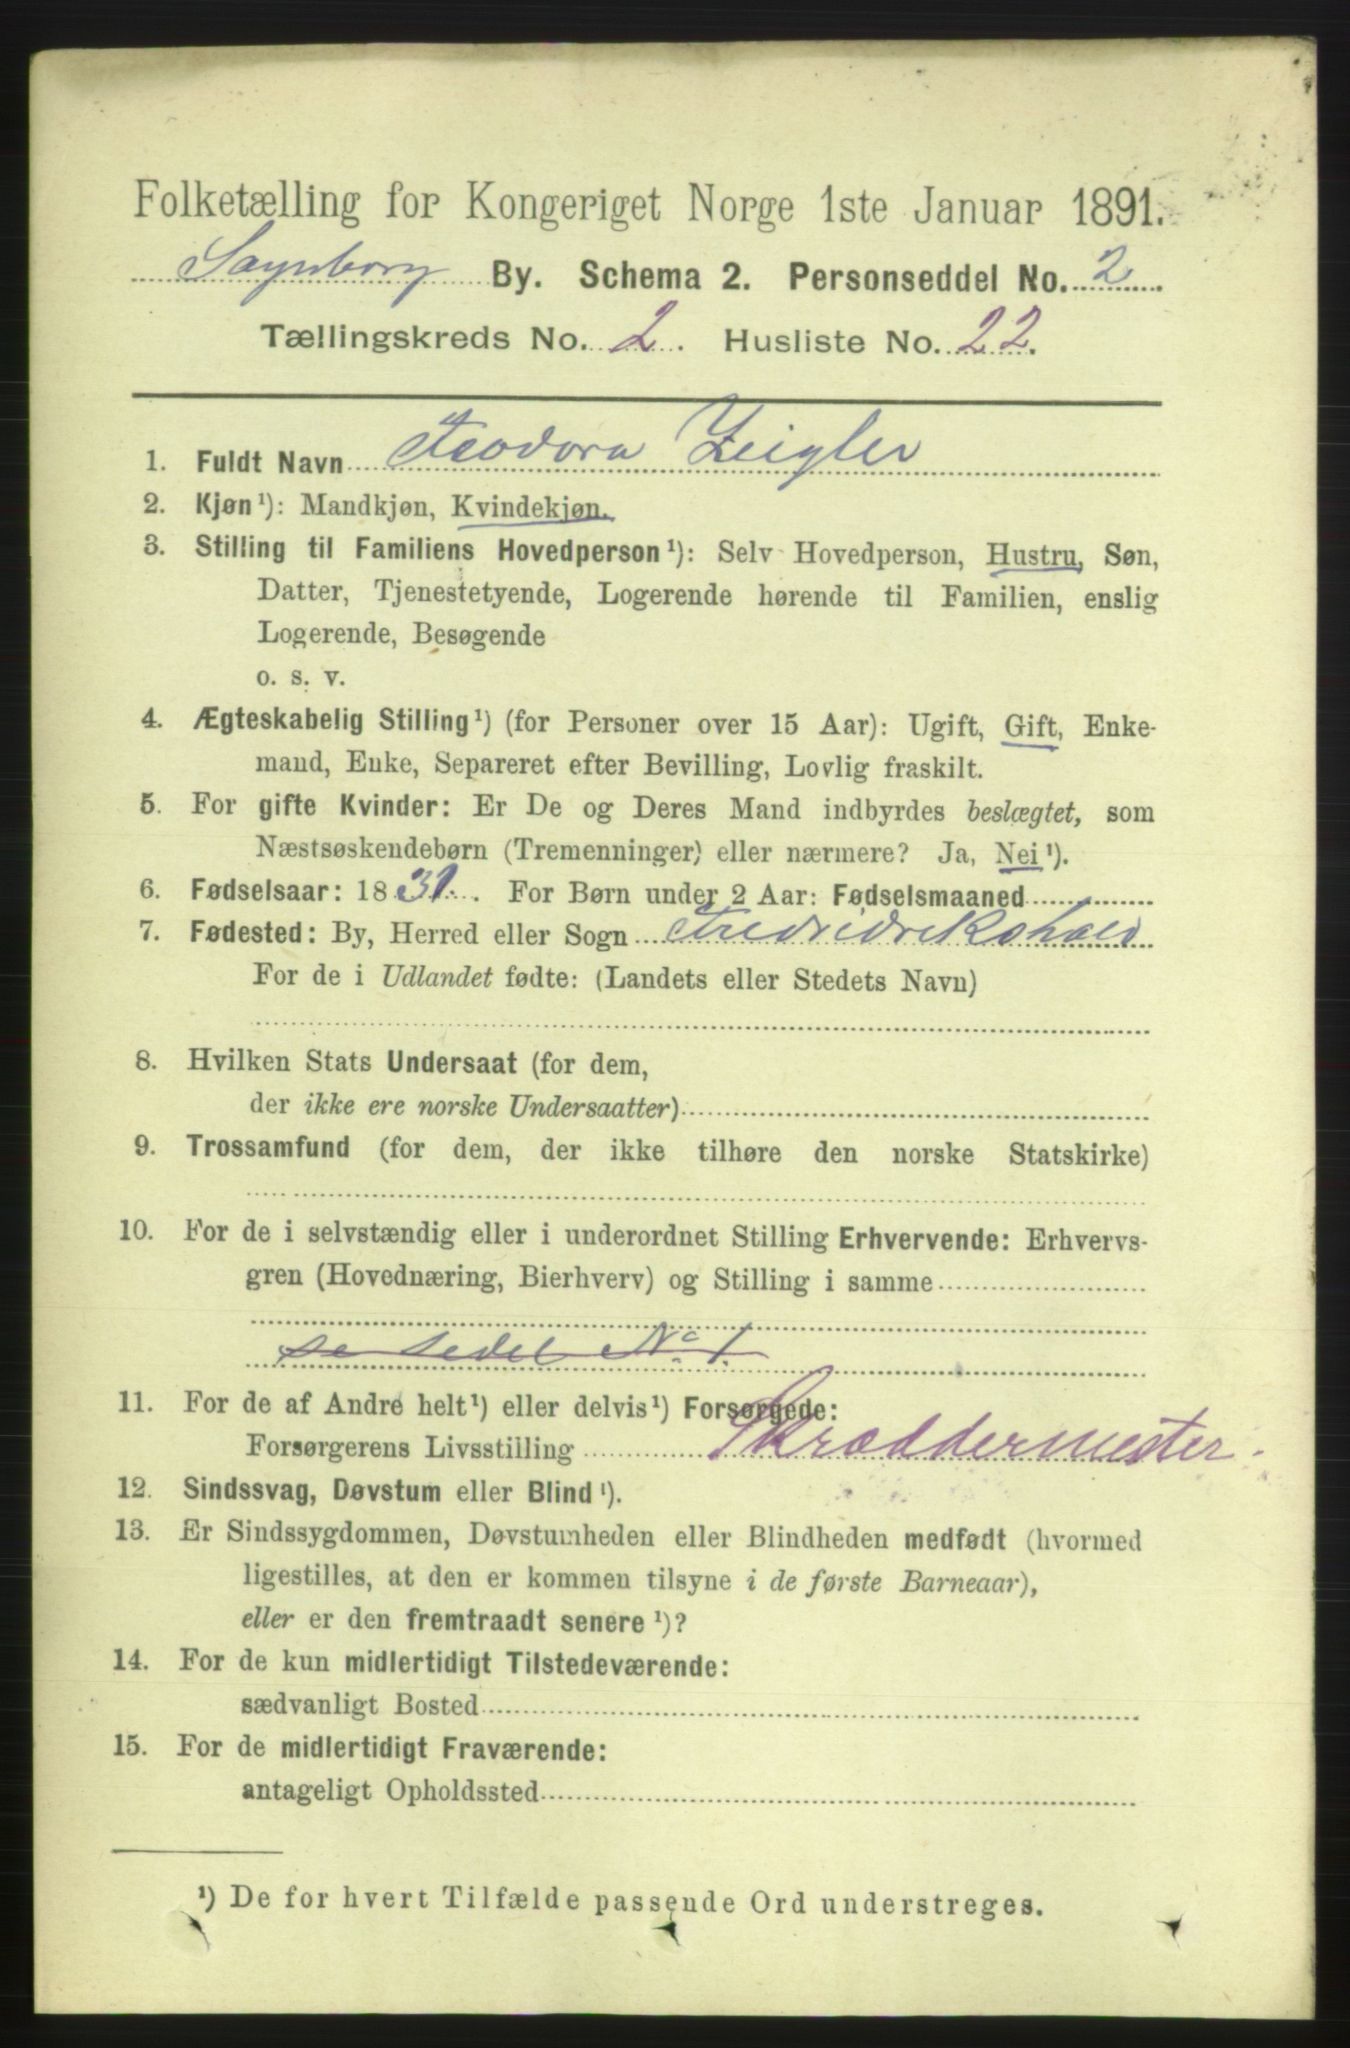 Folketælling for Kongeriget Norge 1ste Januar 1891.
By. Schema 2. Personseddel No. 2.
Tællingskreds No. 2. Husliste No. 22.
1. Fuldt Navn Teodora Zeigler
2. Kjøn¹): Mandkjøn, Kvindekjøn.
3. Stilling til Familiens Hovedperson¹): Selv Hovedperson, Hustru, Søn,
Datter, Tjenestetyende, Logerende hørende til Familien, enslig
Logerende, Besøgende
o. s. v.
4. Ægteskabelig Stilling¹) (for Personer over 15 Aar): Ugift, Gift, Enke-
mand, Enke, Separeret efter Bevilling, Lovlig fraskilt.
5. For gifte Kvinder: Er De og Deres Mand indbyrdes beslægtet, som
Næstsøskendebørn (Tremenninger) eller nærmere? Ja, Nei¹).
6. Fødselsaar: 1831. For Børn under 2 Aar: Fødselsmaaned
7. Fødested: By, Herred eller Sogn Fredridrikshald
For de i Udlandet fødte: (Landets eller Stedets Navn)
8. Hvilken Stats Undersaat (for dem,
der ikke ere norske Undersaatter)
9. Trossamfund (for dem, der ikke tilhøre den norske Statskirke)
10. For de i selvstændig eller i underordnet Stilling Erhvervende: Erhvervs-
gren (Hovednæring, Bierhverv) og Stilling i samme
se sedel No. 1.
11. For de af Andre helt¹) eller delvis¹) Forsørgede:
Forsørgerens Livsstilling Skræddermester.
12. Sindssvag, Døvstum eller Blind¹).
13. Er Sindssygdommen, Døvstumheden eller Blindheden medfødt (hvormed
ligestilles, at den er kommen tilsyne i de første Barneaar),
eller er den fremtraadt senere¹)?
14. For de kun midlertidigt Tilstedeværende:
sædvanligt Bosted
15. For de midlertidigt Fraværende:
antageligt Opholdssted
¹) De for hvert Tilfælde passende Ord understreges.